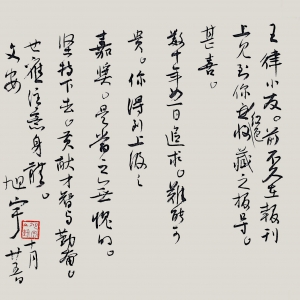 王律小友。前不久在報刊
上見到你红色收藏之报导。
甚喜。
数十年如一日追求。难能可
贵。你得到上级之
嘉奖。是當之無愧的。
坚持下去。贡献才智与勤奋。
也應注意身體。
文安
旭宇
十月